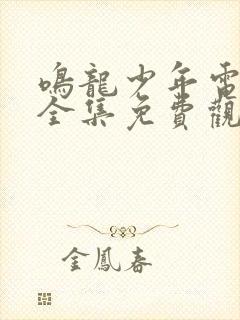 鳴龍少年電
全集免費觀
金鳳春